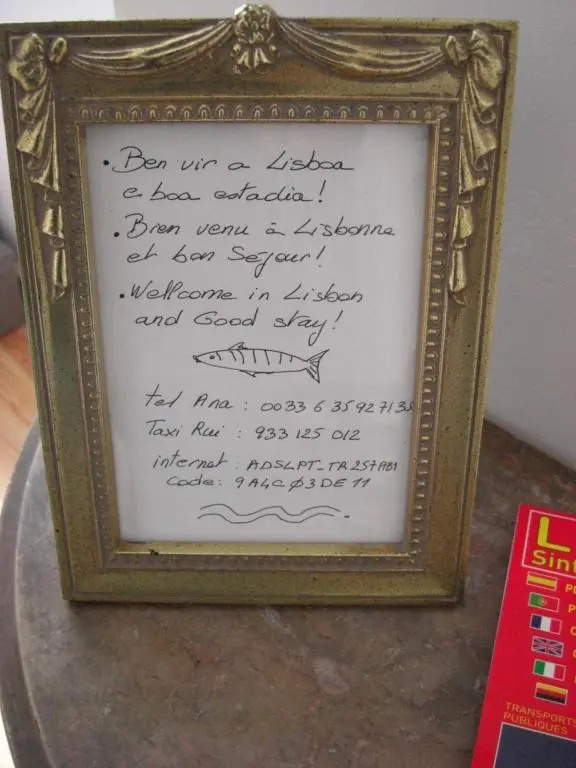 • Ben vir a Lisboa
e boa estadia!
• Bien venu à Lisbonne
et bon Séjour!
• Wellcome in Lisbon
and Good stay!
tel Ana : 0033 6 35 92 71 35
Taxi Rui : 933 125 012
internet : ADSLPT_TR257AB1
code : 9A4CØ3DE11
L
Sint
TRANSPORTS
PUBLIQUES